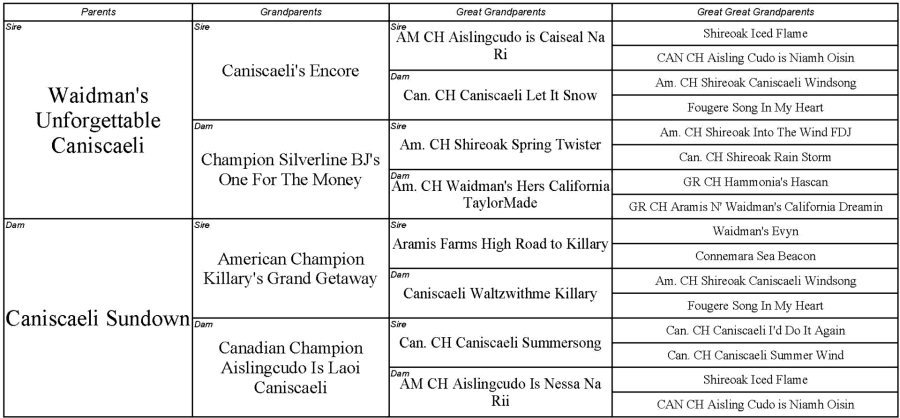 Parents
Grandparents
Great Grandparents
Great Great Grandparents
Sire
Waidman's
Unforgettable
Caniscaeli
Sire
Caniscaeli's Encore
Sire
AM CH Aislingcudo is Caiseal Na
Ri
Shireoak Iced Flame
CAN CH Aisling Cudo is Niamh Oisin
Dam
Can. CH Caniscaeli Let It Snow
Am. CH Shireoak Caniscaeli Windsong
Fougere Song In My Heart
Dam
Champion Silverline BJ's
One For The Money
Sire
Am. CH Shireoak Spring Twister
Am. CH Shireoak Into The Wind FDJ
Can. CH Shireoak Rain Storm
Dam
Am. CH Waidman's Hers California
TaylorMade
GR CH Hammonia's Hascan
GR CH Aramis N' Waidman's California Dreamin
Dam
Caniscaeli Sundown
Sire
American Champion
Killary's Grand Getaway
Sire
Aramis Farms High Road to Killary
Waidman's Evyn
Connemara Sea Beacon
Dam
Caniscaeli Waltzwithme Killary
Am. CH Shireoak Caniscaeli Windsong
Fougere Song In My Heart
Dam
Canadian Champion
Aislingcudo Is Laoi
Caniscaeli
Sire
Can. CH Caniscaeli Summersong
Can. CH Caniscaeli I'd Do It Again
Can. CH Caniscaeli Summer Wind
Dam
AM CH Aislingcudo Is Nessa Na
Rii
Shireoak Iced Flame
CAN CH Aisling Cudo is Niamh Oisin